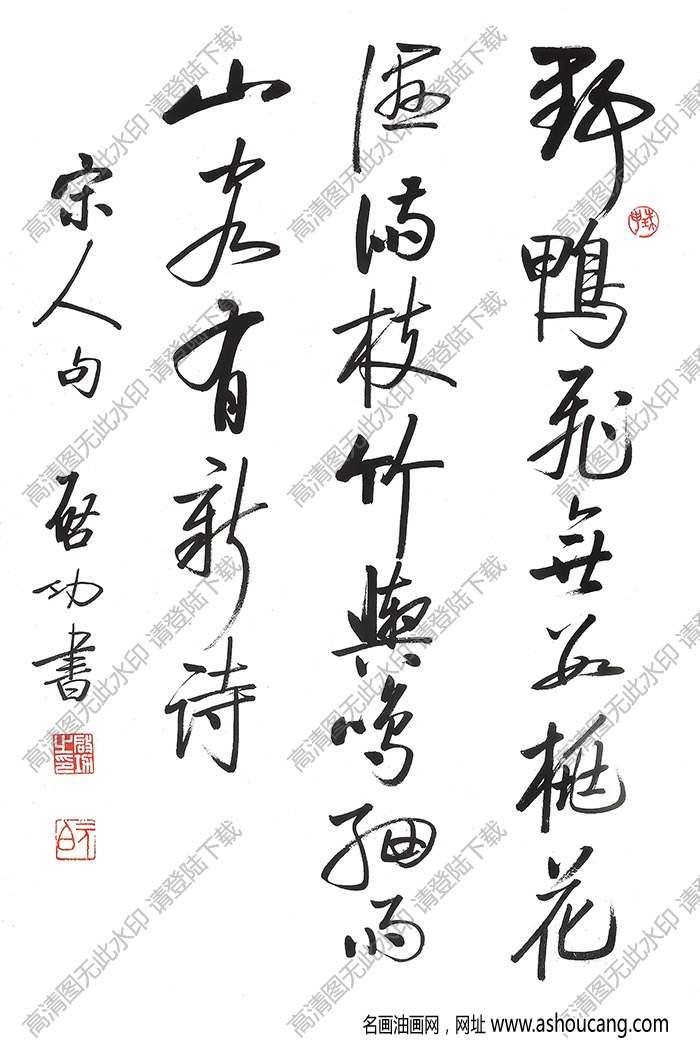 野鴨飛無數桃花
濕滿枝竹輿鳴細雨
山客有新詩
宋人句 啟功書
啟功之印
元白
高清图无此水印 请登陆下载
名画油画网，网址 www.ashoucang.com